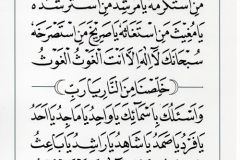 مَنِ اسْتَكْرَمَهُ يَا مُرْشِدَ مَنِ اسْتَرْشَدَهُ
يَا مُغِيثَ مَنِ اسْتَغَاثَهُ يَا صَرِيخَ مَنِ اسْتَصْرَخَهُ
سُبْحَانَكَ يَا لَا إِلٰهَ إِلَّا أَنْتَ الْغَوْثُ الْغَوْثُ
خَلِّصْنَا مِنَ النَّارِ يَا رَبِّ
وَأَسْئَلُكَ بِأَسْمَائِكَ يَا وَاحِدُ يَا مَاجِدُ يَا أَحَدُ
يَا فَرْدُ يَا صَمَدُ يَا شَاهِدُ يَا رَاشِدُ يَا بَاعِثُ